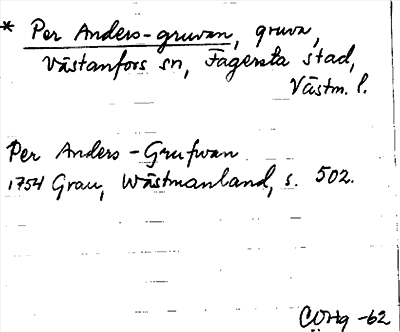 * Per Anders-gruvan, gruva,
Västanfors sn, Fagersta stad,
Västm. l.
Per Anders-Grufwan
1754 Grau, Wästmanland, s. 502.
COHq -62